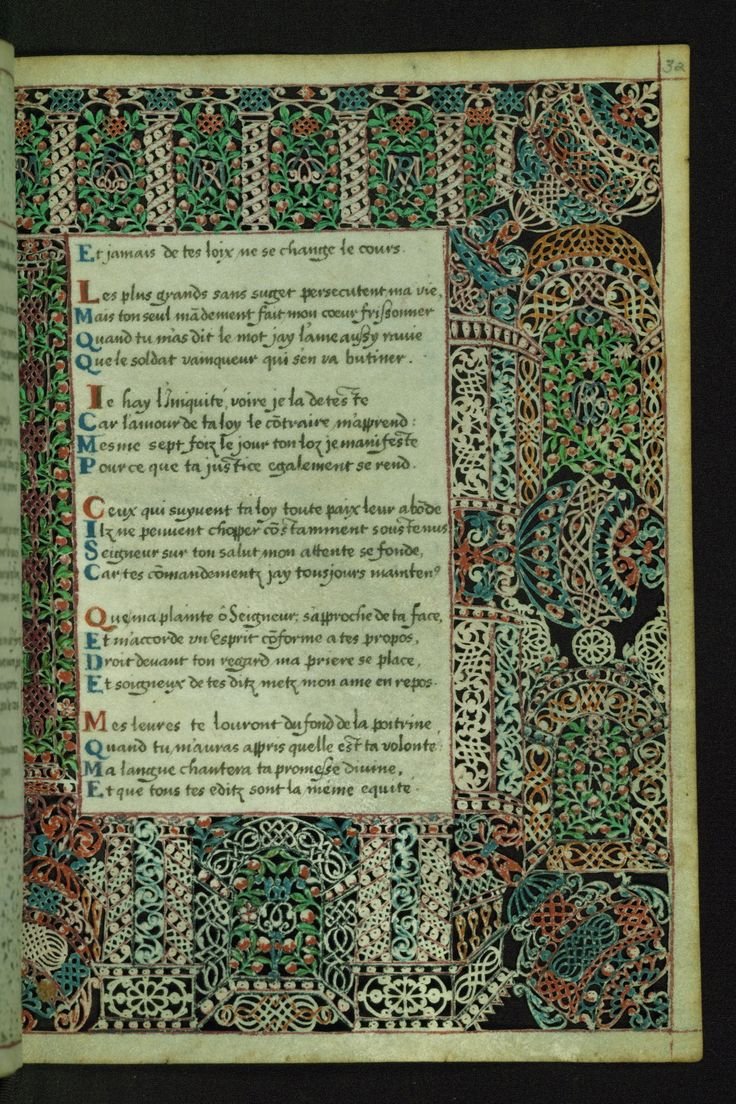 32
Et jamais de tes loix ne se change le cours.
Les plus grands sans suget persecutent ma vie,
Mais ton seul mādement fait mon coeur frissonner
Quand tu m'as dit le mot jay l'ame aussy ravie
Que le soldat vainqueur qui s'en va butiner.
Ie hay l'Iniquité, voire je la deteste
Car l'amour de ta loy le cōtraire m'apprend:
Mesme sept foiz le jour ton loz je manifeste
Pource que ta justice egalement se rend.
Ceux qui suyvent ta loy toute paix leur abōde
Ilz ne peuvent chopper cōstamment soustenus
Seigneur sur ton salut mon attente se fonde,
Car tes cōmandementz jay tousjours mainten9
Que ma plainte ô Seigneur; s'approche de ta face,
Et m'accorde vn Esprit cōforme a tes propos,
Droit devant ton regard ma priere se place,
Et soigneux de tes ditz metz mon ame en repos.
Mes levres te louront du fond de la poitrine
Quand tu m'auras appris quelle est ta volonté:
Ma langue chantera ta promesse divine,
Et que tous tes editz sont la méme equité.